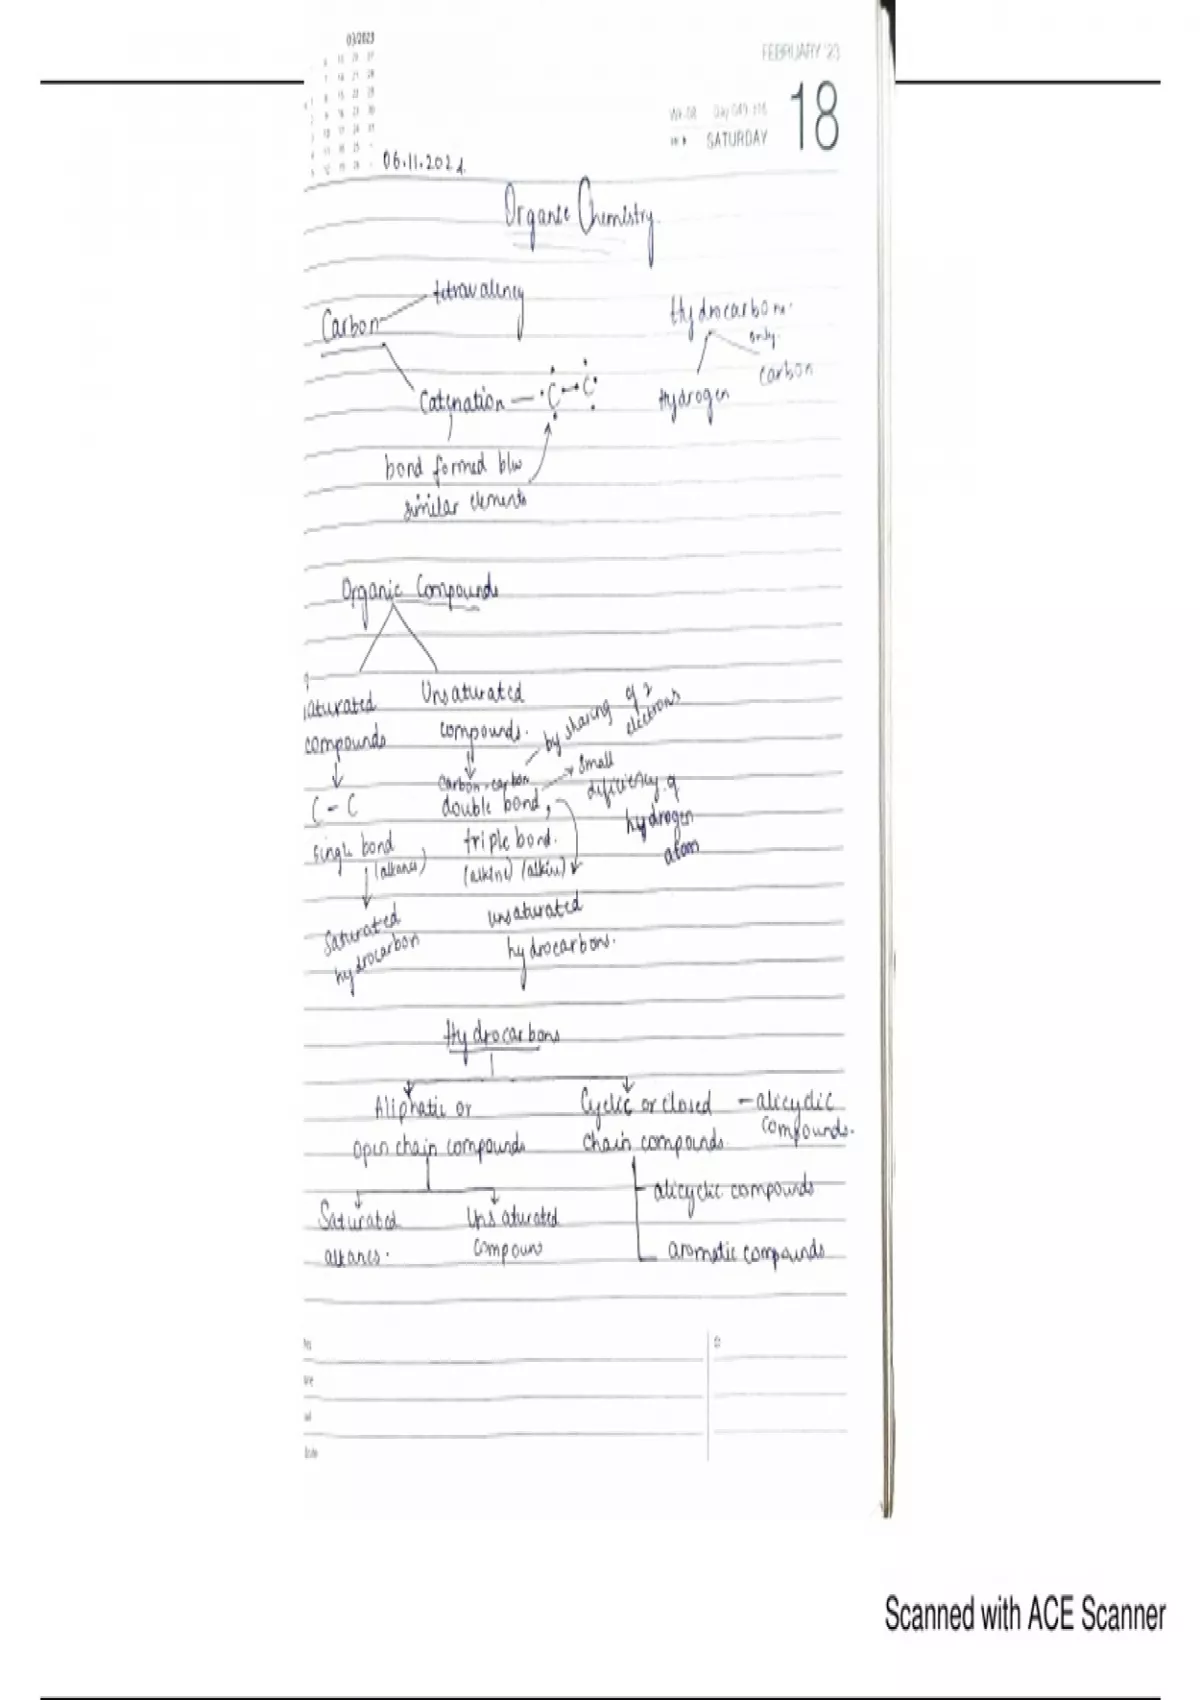 03/2023
FEBRUARY '23
18
SATURDAY
06.11.2024
Organic Chemistry.
Carbon
tetravalency
Catenation — C C
bond formed b/w
similar elements
Hydrocarbons.
only.
Hydrogen
carbon
Organic Compounds
saturated
compounds
C - C
single bond
(alkanes)
Saturated
hydrocarbon
Unsaturated
compounds.
carbon-carbon
double bond,
triple bond.
unsaturated
hydrocarbons.
by sharing of 2
electrons
small
deficiency of
hydrogen
atom
Hydrocarbons
Aliphatic or
open chain compounds
Cyclic or closed
chain compounds.
- alicyclic
compounds.
Saturated
alkanes.
Unsaturated
compouns
alicyclic compounds
aromatic compounds
Scanned with ACE Scanner